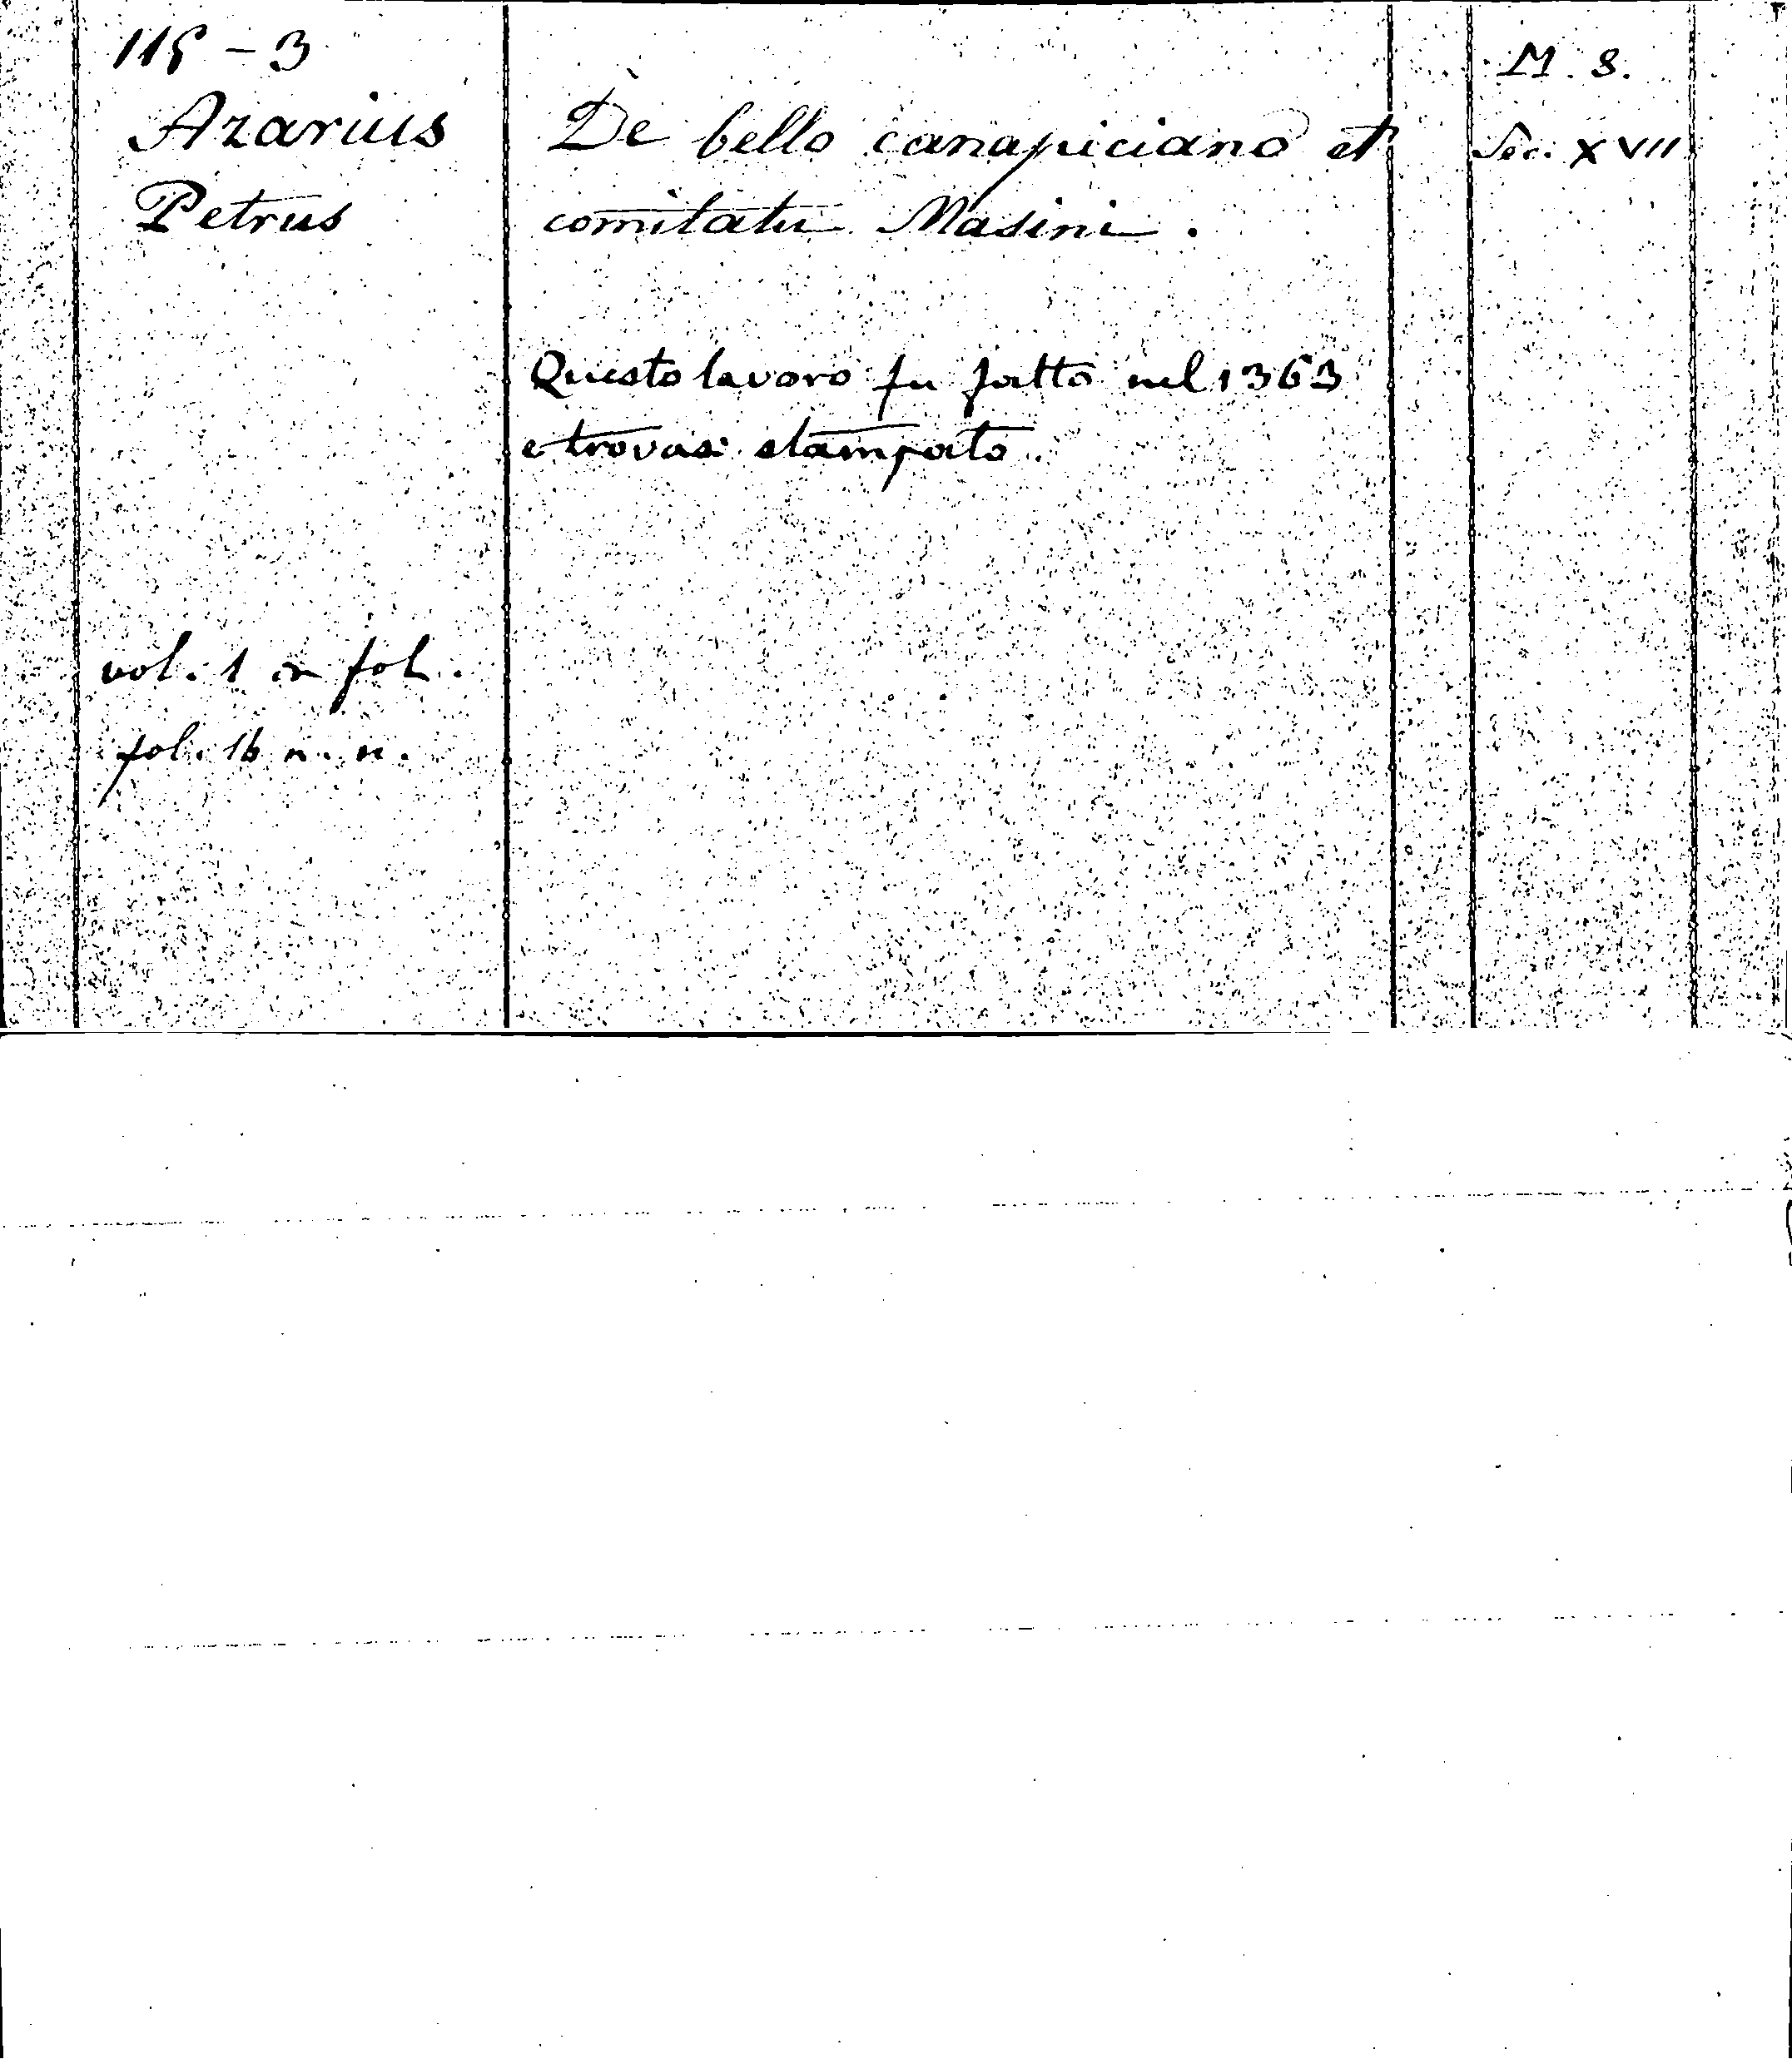 115 - 3
Azarius
Petrus
De bello canapiciano et
comitatu Masini.
M. S.
Sec. XVII
Questo lavoro fu fatto nel 1363
e trovasi stampato.
vol. 1 in fol.
fol. 16 n. n.